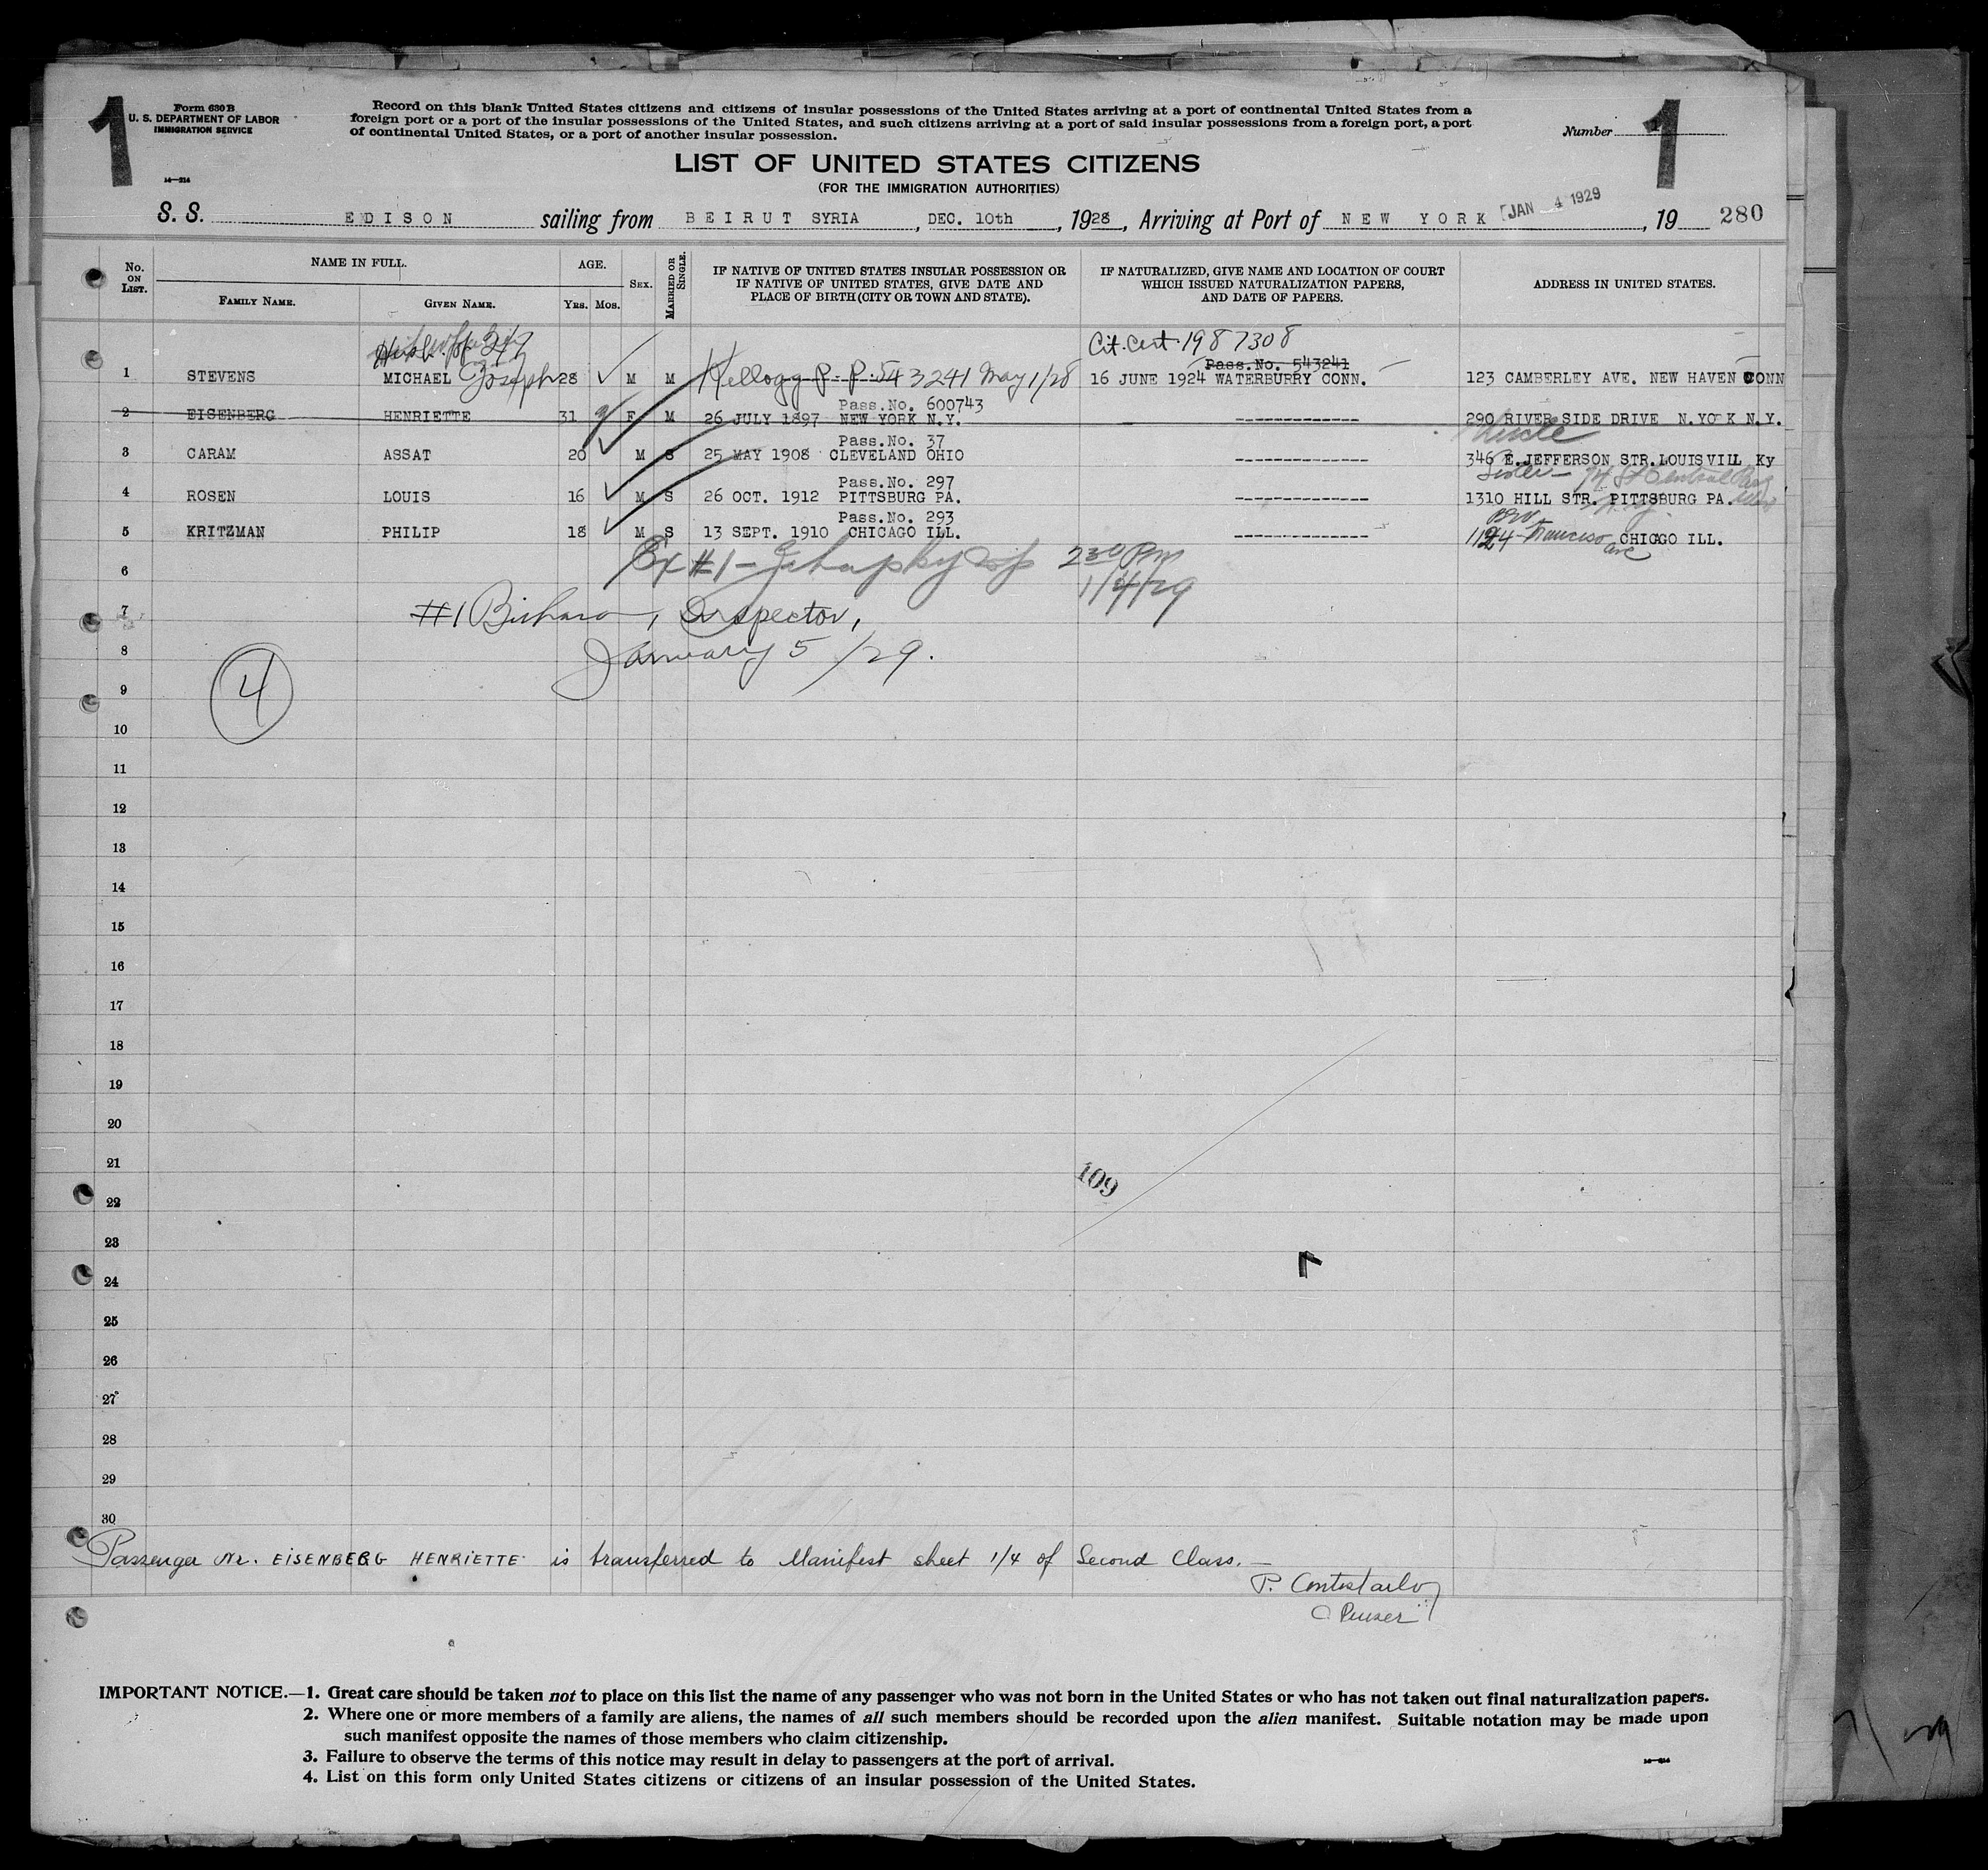 1
Form 630 B
U. S. DEPARTMENT OF LABOR
IMMIGRATION SERVICE
14—214
Record on this blank United States citizens and citizens of insular possessions of the United States arriving at a port of continental United States from a
foreign port or a port of the insular possessions of the United States, and such citizens arriving at a port of said insular possessions from a foreign port, a port
of continental United States, or a port of another insular possession.
Number 1
1
LIST OF UNITED STATES CITIZENS
(FOR THE IMMIGRATION AUTHORITIES)
S. S. EDISON sailing from BEIRUT SYRIA, DEC. 10th, 1928, Arriving at Port of NEW YORK JAN 4 1929, 19 280
No. ON LIST.
NAME IN FULL.
FAMILY NAME.
GIVEN NAME.
AGE.
YRS. MOS.
SEX.
MARRIED OR SINGLE.
IF NATIVE OF UNITED STATES INSULAR POSSESSION OR
IF NATIVE OF UNITED STATES, GIVE DATE AND
PLACE OF BIRTH (CITY OR TOWN AND STATE).
IF NATURALIZED, GIVE NAME AND LOCATION OF COURT
WHICH ISSUED NATURALIZATION PAPERS,
AND DATE OF PAPERS.
ADDRESS IN UNITED STATES.
Cit. Cert 1987308
Pass.No. 543241
1 STEVENS MICHAEL Joseph 28 M M Kellogg P. P. 543241 May 1/28 16 JUNE 1924 WATERBURRY CONN. 123 CAMBERLEY AVE. NEW HAVEN CONN
Pass.No. 600743
2 EISENBERG HENRIETTE 31 F M 26 JULY 1897 NEW YORK N.Y. ------------- 290 RIVER SIDE DRIVE N.YO K N.Y.
Pass.No. 37 Uncle
3 CARAM ASSAT 20 M S 25 MAY 1908 CLEVELAND OHIO ------------- 346 E.JEFFERSON STR.LOUISVILL Ky
Pass.No. 297
4 ROSEN LOUIS 16 M S 26 OCT. 1912 PITTSBURG PA. ------------- 1310 HILL STR. PITTSBURG PA.
Pass.No. 293
5 KRITZMAN PHILIP 18 M S 13 SEPT. 1910 CHICAGO ILL. ------------- 1124 Francisco ave CHICGO ILL.
6 Ex #1 2 30 Pm
1/4/29
7 #1 Inspector,
8 January 5/29.
4
9
10
11
12
13
14
15
16
17
18
19
20
21
109
22
23
24
25
26
27
28
29
30
Passenger Nr. EISENBERG HENRIETTE is transferred to Manifest sheet 1/4 of Second Class. —
Purser
IMPORTANT NOTICE.—1. Great care should be taken not to place on this list the name of any passenger who was not born in the United States or who has not taken out final naturalization papers.
2. Where one or more members of a family are aliens, the names of all such members should be recorded upon the alien manifest. Suitable notation may be made upon
such manifest opposite the names of those members who claim citizenship.
3. Failure to observe the terms of this notice may result in delay to passengers at the port of arrival.
4. List on this form only United States citizens or citizens of an insular possession of the United States.